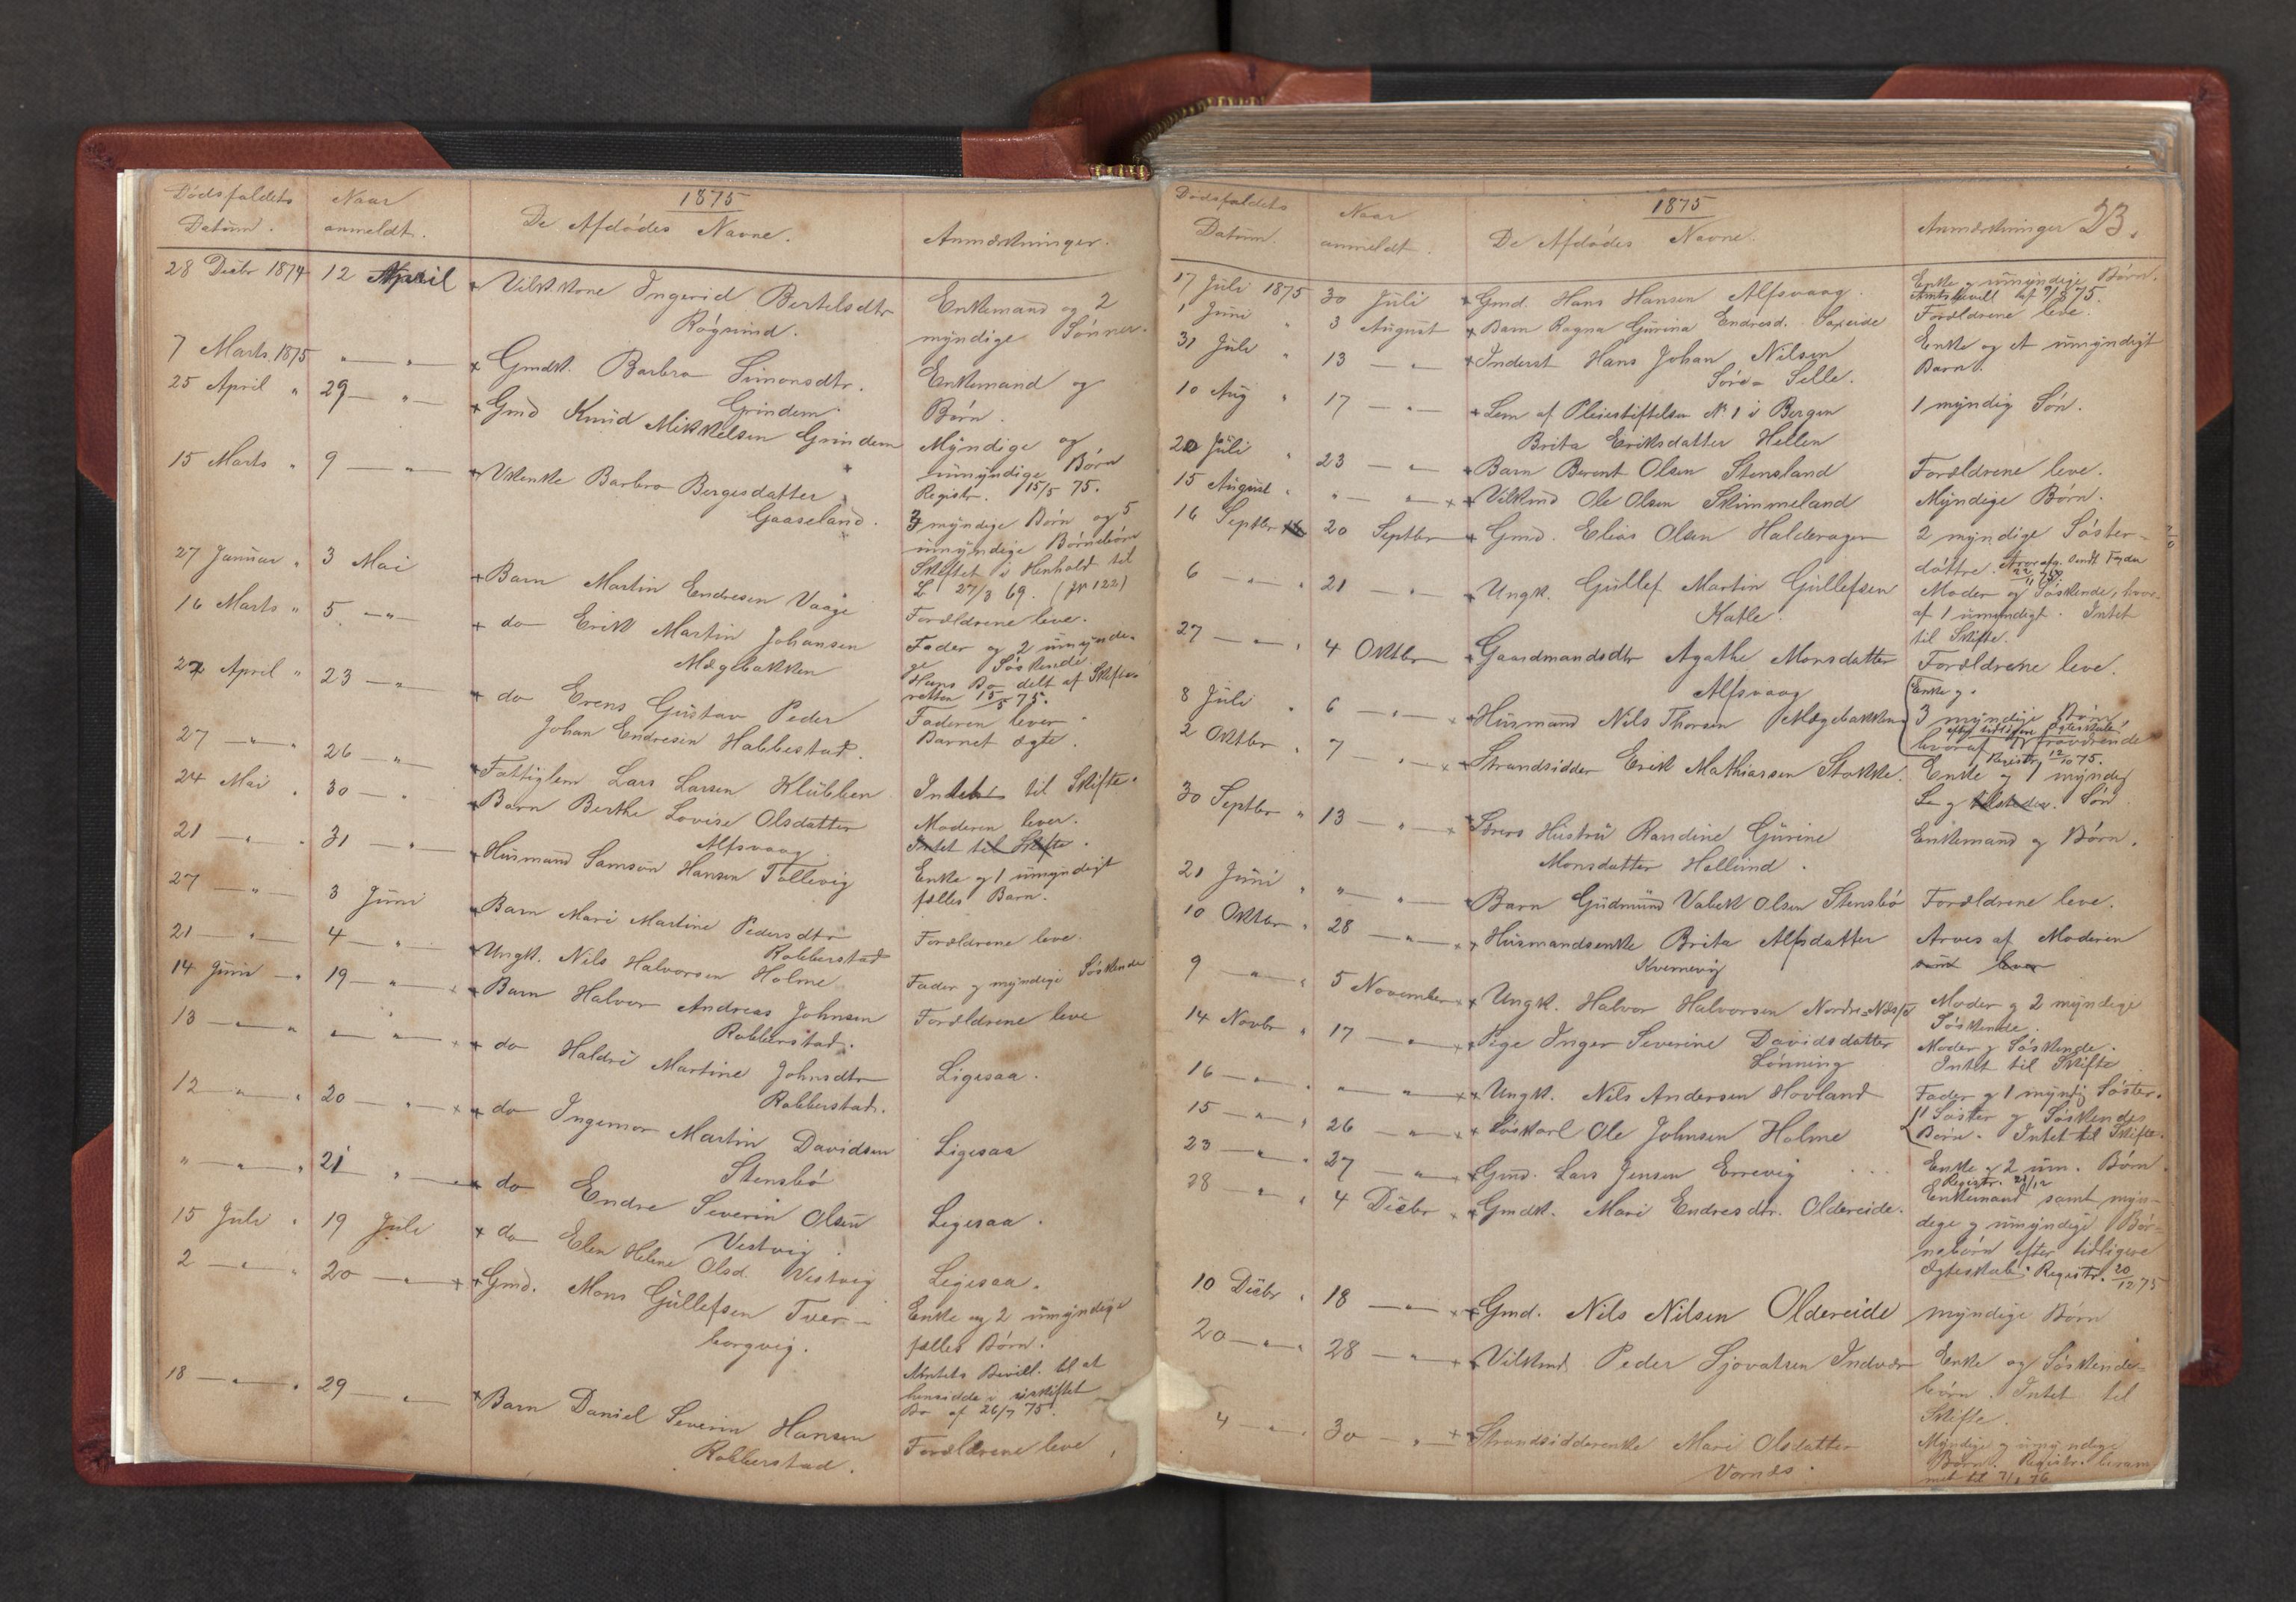 Dödsfaldets Datum. Naar anmeldt. 1875 De Afdödes Navne. Anmærkninger.
28 Decbr 1874 12 April + Vilk.kone Ingerid Bertelsdtr Enkemand og 2
Røgsund. myndige Sönner.
7 Marts 1875 " — " — + Gmdk. Barbro Simonsdtr. Enkemand og
Grindem. Börn.
25 April " 29 — " — + Gmd Knud Mikkelsen Grindem Myndige og
umyndige Börn
Registr. 15/5 75.
15 Marts " 9 — " — + Vkenke Barbro Bergesdatter 3 myndige Börn og 5
Gaaseland. umyndige Börnebörn
Skiftet i Henhold til
L 27/3 69. (pr 122)
27 Januar " 3 Mai + Barn Martin Endresen Vaage Forældrene leve.
16 Marts " 5 — " — + do Erik Martin Johansen Fader og 2 umyndi-
Mægebakken ge Söskende.
Hans Bo delt af Skifte-
retten 15/5 75.
22 April " 23 — " + do Erens Gustav Peder Faderen lever.
Johan Endresen Habbestad. Barnet ægte.
27 — " — " 26 — " + Fattiglem Lars Larsen Klubben Intet til Skifte.
24 Mai " 30 — " + Barn Berthe Lovise Olsdatter Moderen lever.
Alfsvaag. Intet til Skifte.
21 — " — " 31 — " — + Husmand Samson Hansen Tollevig Enke og 1 umyndigt
fælles Barn.
27 — " — 3 Juni + Barn Mari Martine Pedersdtr Forældrene leve.
Robberstad
21 — " — 4 — " — + Ungk. Nils Halvorsen Holme Fader og myndige Söskende
14 Juni — " 19 — " — + + Barn Halvor Andreas Johnsen Forældrene leve
Robberstad.
13 — " — " " — " — + + do Haldri Martine Johnsdtr Ligesaa.
Robberstad.
12 — " — " 20 — " — + + do Ingemor Martin Davidsen Ligesaa
Stensbö
" — " — " 21 " — + do Endre Severin Olsen Ligesaa.
Vestvig.
15 Juli " 19 Juli + do Elen Helene Olsd. Vestvig Ligesaa.
2 — " — " 20 — " — + + Gmd. Mons Gullefsen Tver- Enke og 2 umyndige
borgvig. fælles Börn.
Amtets Bevill. til at
hensidde i uskiftet
Bo af 26/7 75.
18 — " — " 29 — " — + Barn Daniel Severin Hansen Forældrene leve.
Robberstad.
Dödsfaldets Datum. Naar anmeldt. 1875 De Afdödes Navne. Anmærkninger 23.
17 Juli 1875 30 Juli + Gmd. Hans Hansen Alfsvaag. Enke og umyndige Börn.
Amtsbevill af 7/8 75.
1 Juni " 3 August + Barn Ragna Gurina Endresd. Saxeide Forældrene leve.
31 Juli " 13 — " — + Inderst Hans Johan Nilsen Enke og et umyndigt
Söre Selle. Barn.
10 Aug " 17 — " — + Lem af Pleiestiftelsen No. 1 i Bergen 1 myndig Sön.
Brita Eriksdatter Hellen
20 Juli " 23 — " — + Barn Berent Olsen Stensland Forældrene leve.
15 August " " — " — + + Vilkmd Ole Olsen Skimmeland Myndige Börn.
16 Septbr 20 Septbr + Gmd. Elias Olsen Halderager 2 myndige Söster-
döttre.
6 — " — " 21 — " — + Ungk. Gullef Martin Gullefsen Moder og Söskende, hvor-
Katle. af 1 umyndigt. Intet
til Skifte.
27 — " — " 4 Oktbr + Gaardmandsdtr Agathe Monsdatter Forældrene leve.
Alfsvaag
8 Juli " 6 — " — + + Husmand Nils Thorsen Mægebakken Enke og
3 myndige Börn
efter tidligere Ægteskab,
hvoraf 1 fraværende
Registr. 12/10 75.
2 Oktbr " 7 — " — + Strandsidder Erik Mathiasen Stokke. Enke og 1 myndig
Sön
30 Septbr " 13 — " — + + Husstru Randine Gurine Enkemand og Börn.
Monsdatter Hellund.
21 Juni " " — " — + Barn Gudmund Vabek Olsen Stensbö Forældrene leve.
10 Oktbr " 28 — " — + + Husmandsenke Brita Alfsdatter Arves af Moderen
Kvernevig som lever
9 — " — " 5 November + + Ungk. Halvor Halvorsen Nordre Moder og 2 myndige
Söskende.
14 Novbr " 17 — " — + + Pige Inger Severine Davidsdatter Moder og Söskende.
Lönning Intet til Skifte
16 — " — " " — " — + + Ungk. Nils Andersen Hovland Fader og 1 myndig Söster.
15 — " — " 26 — " — + + Löskarl Ole Johnsen Holme 1 Söster og Söskendes
Börn. Intet til Skifte.
23 — " — " 27 — " — + Gmd. Lars Jensen Errevig Enke og 2 um. Börn.
Registr. 21/12
28 — " — " 4 Decbr + + Gmdk. Mari Endresdtr. Oldereide. Enkemand samt myn-
dige og umyndige Bör-
nebörn efter tidligere
Ægteskab. Registr. 20/12 75
10 Decbr " 18 — " — + + Gmd. Nils Nilsen Oldereide myndige Börn
20 — " — " 28 — " — + + Vilkmd Peder Sjovatsen Indvær Enke og Söskende-
börn. Intet til
Skifte.
4 — " — " 30 — " — + + Strandsidderenke Mari Olsdatter Myndige og umyndige
Vornes. Börn. Registr. beram-
met til 7/1 76